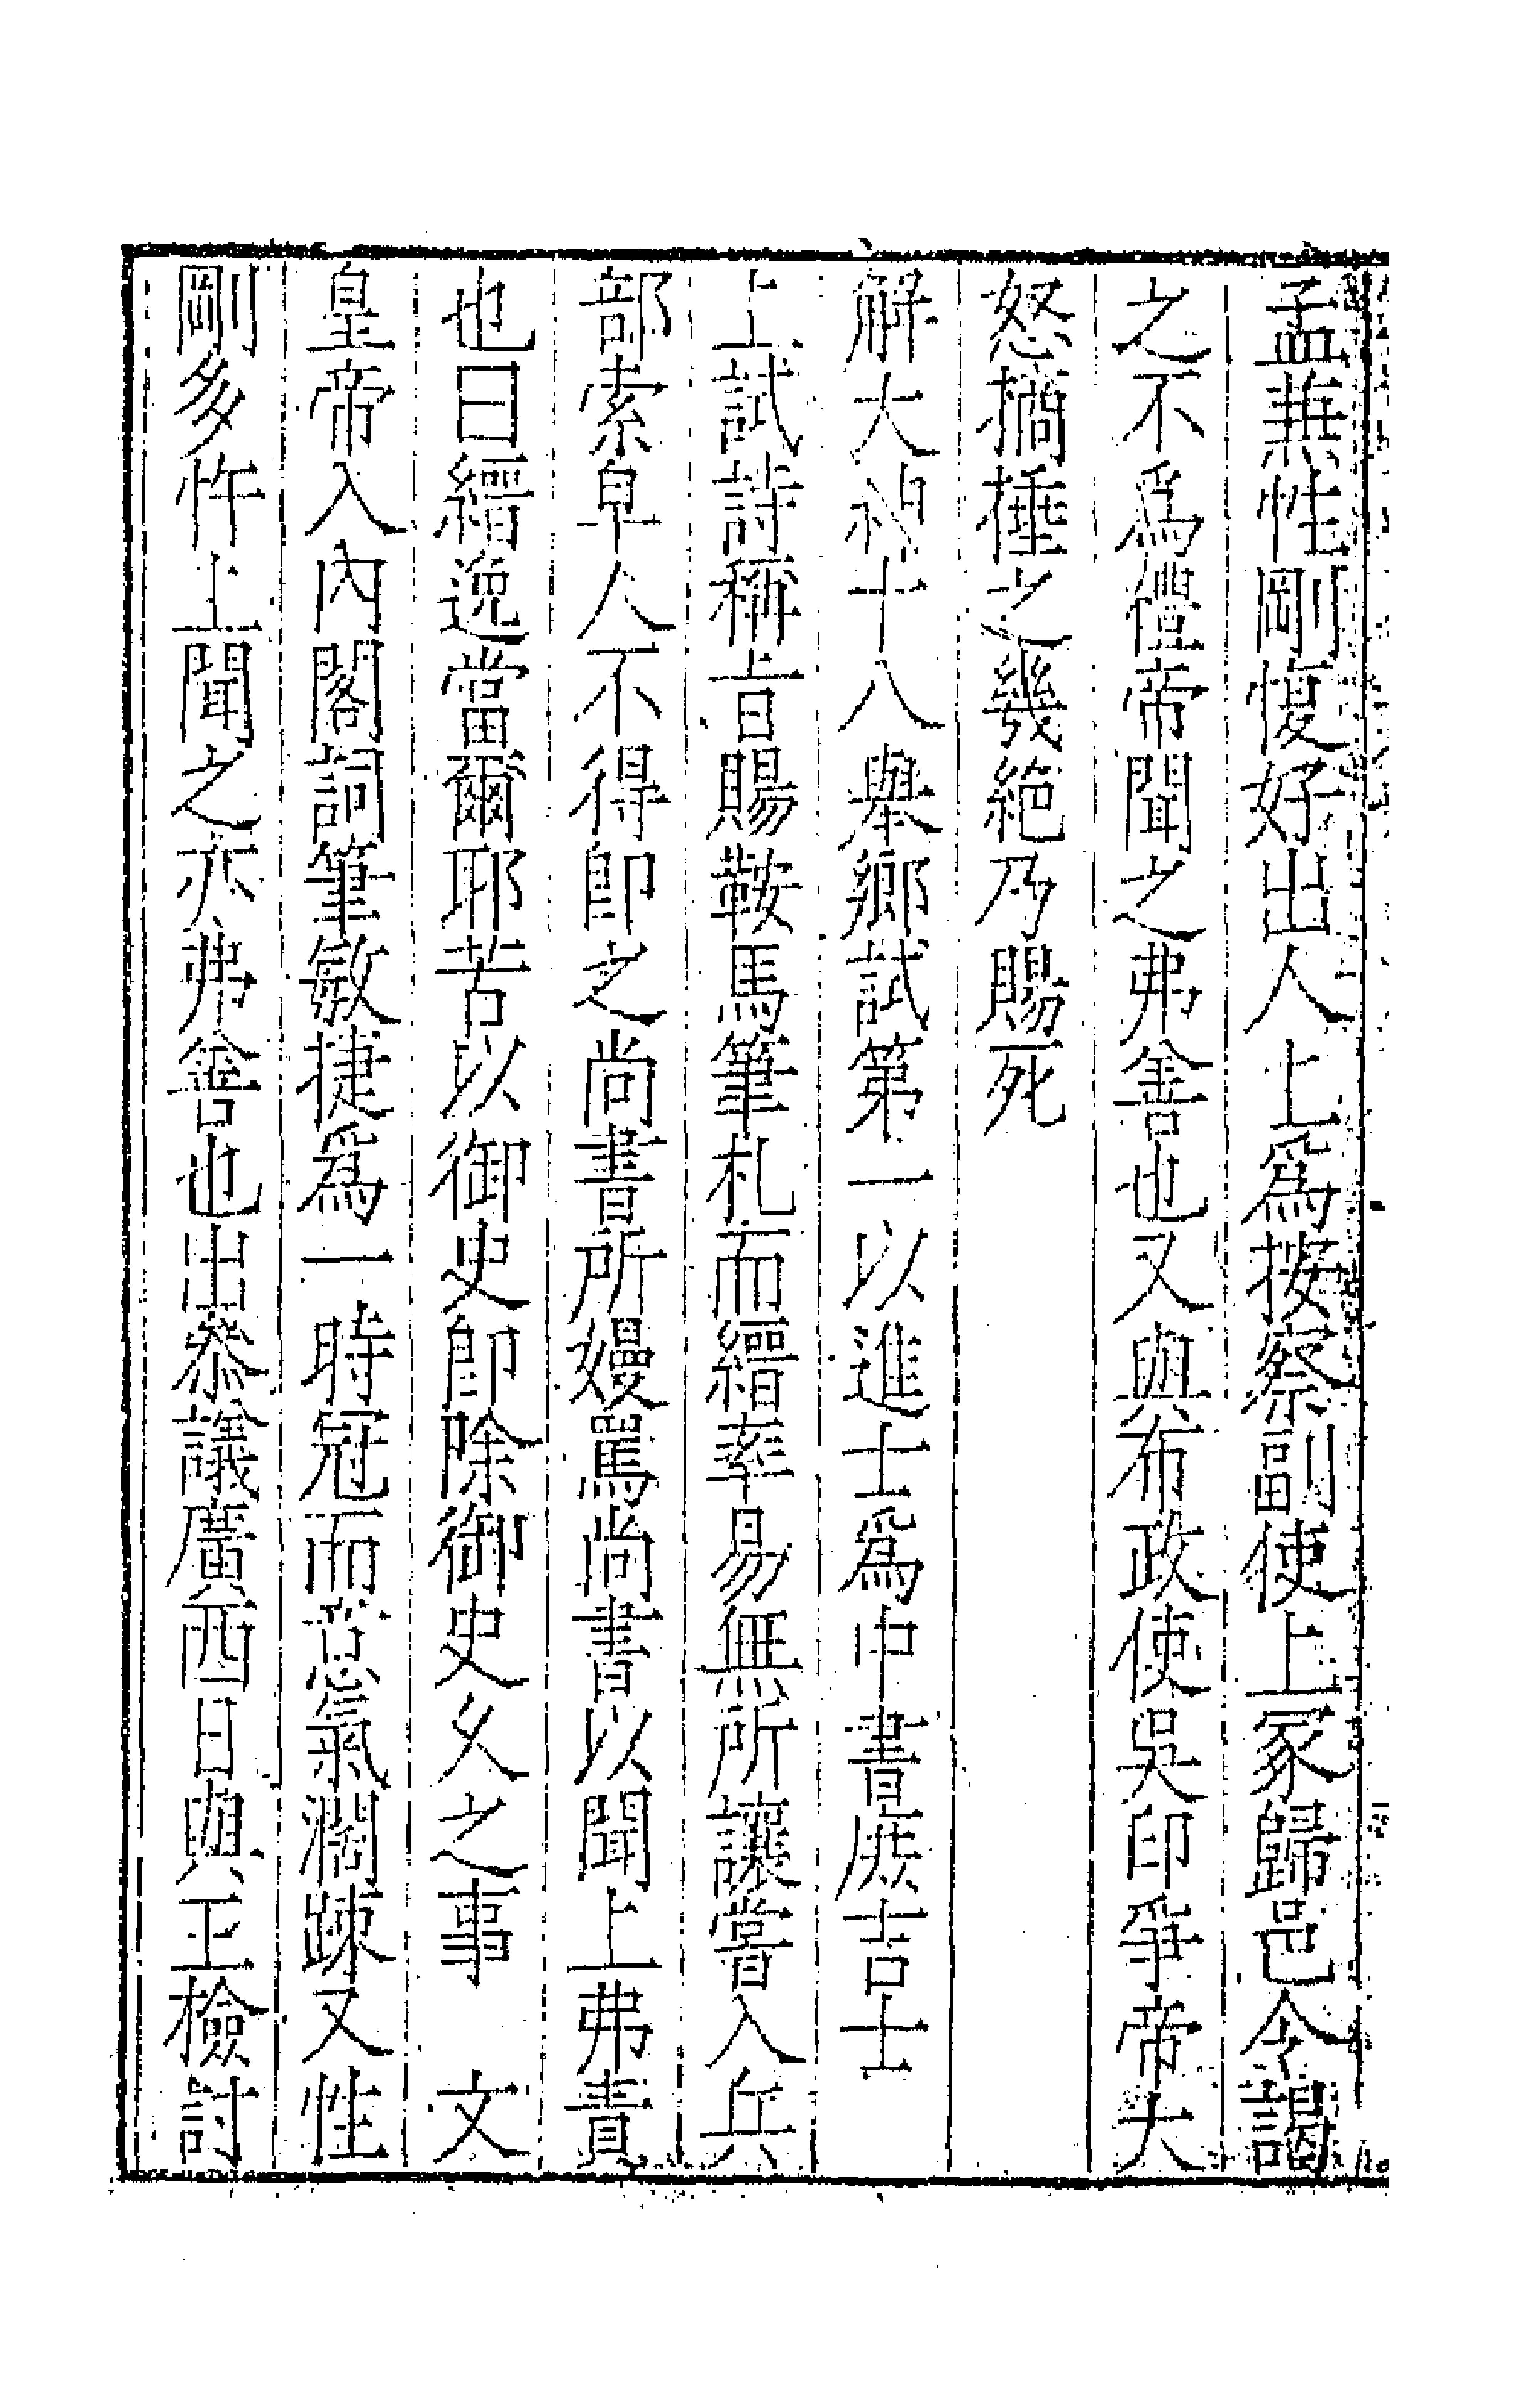 孟兼性剛愎好出人上爲按察副使上冢歸邑令謁
之不爲禮帝聞之弗善也又與布政使吳印爭帝大
怒摘捶之幾絕乃賜死
解大紳十八舉鄉試第一以進士爲中書庶吉士
上試詩稱旨賜鞍馬筆札而縉率易無所讓嘗入兵
部索皁人不得卽之尚書所嫚罵尚書以聞上弗責
也曰縉逸當爾耶苦以御史卽除御史久之事　文
皇帝入內閣詞筆敏捷爲一時冠而意氣濶疎又性
剛多忤上聞之亦弗善也出叅議廣西日與王檢討